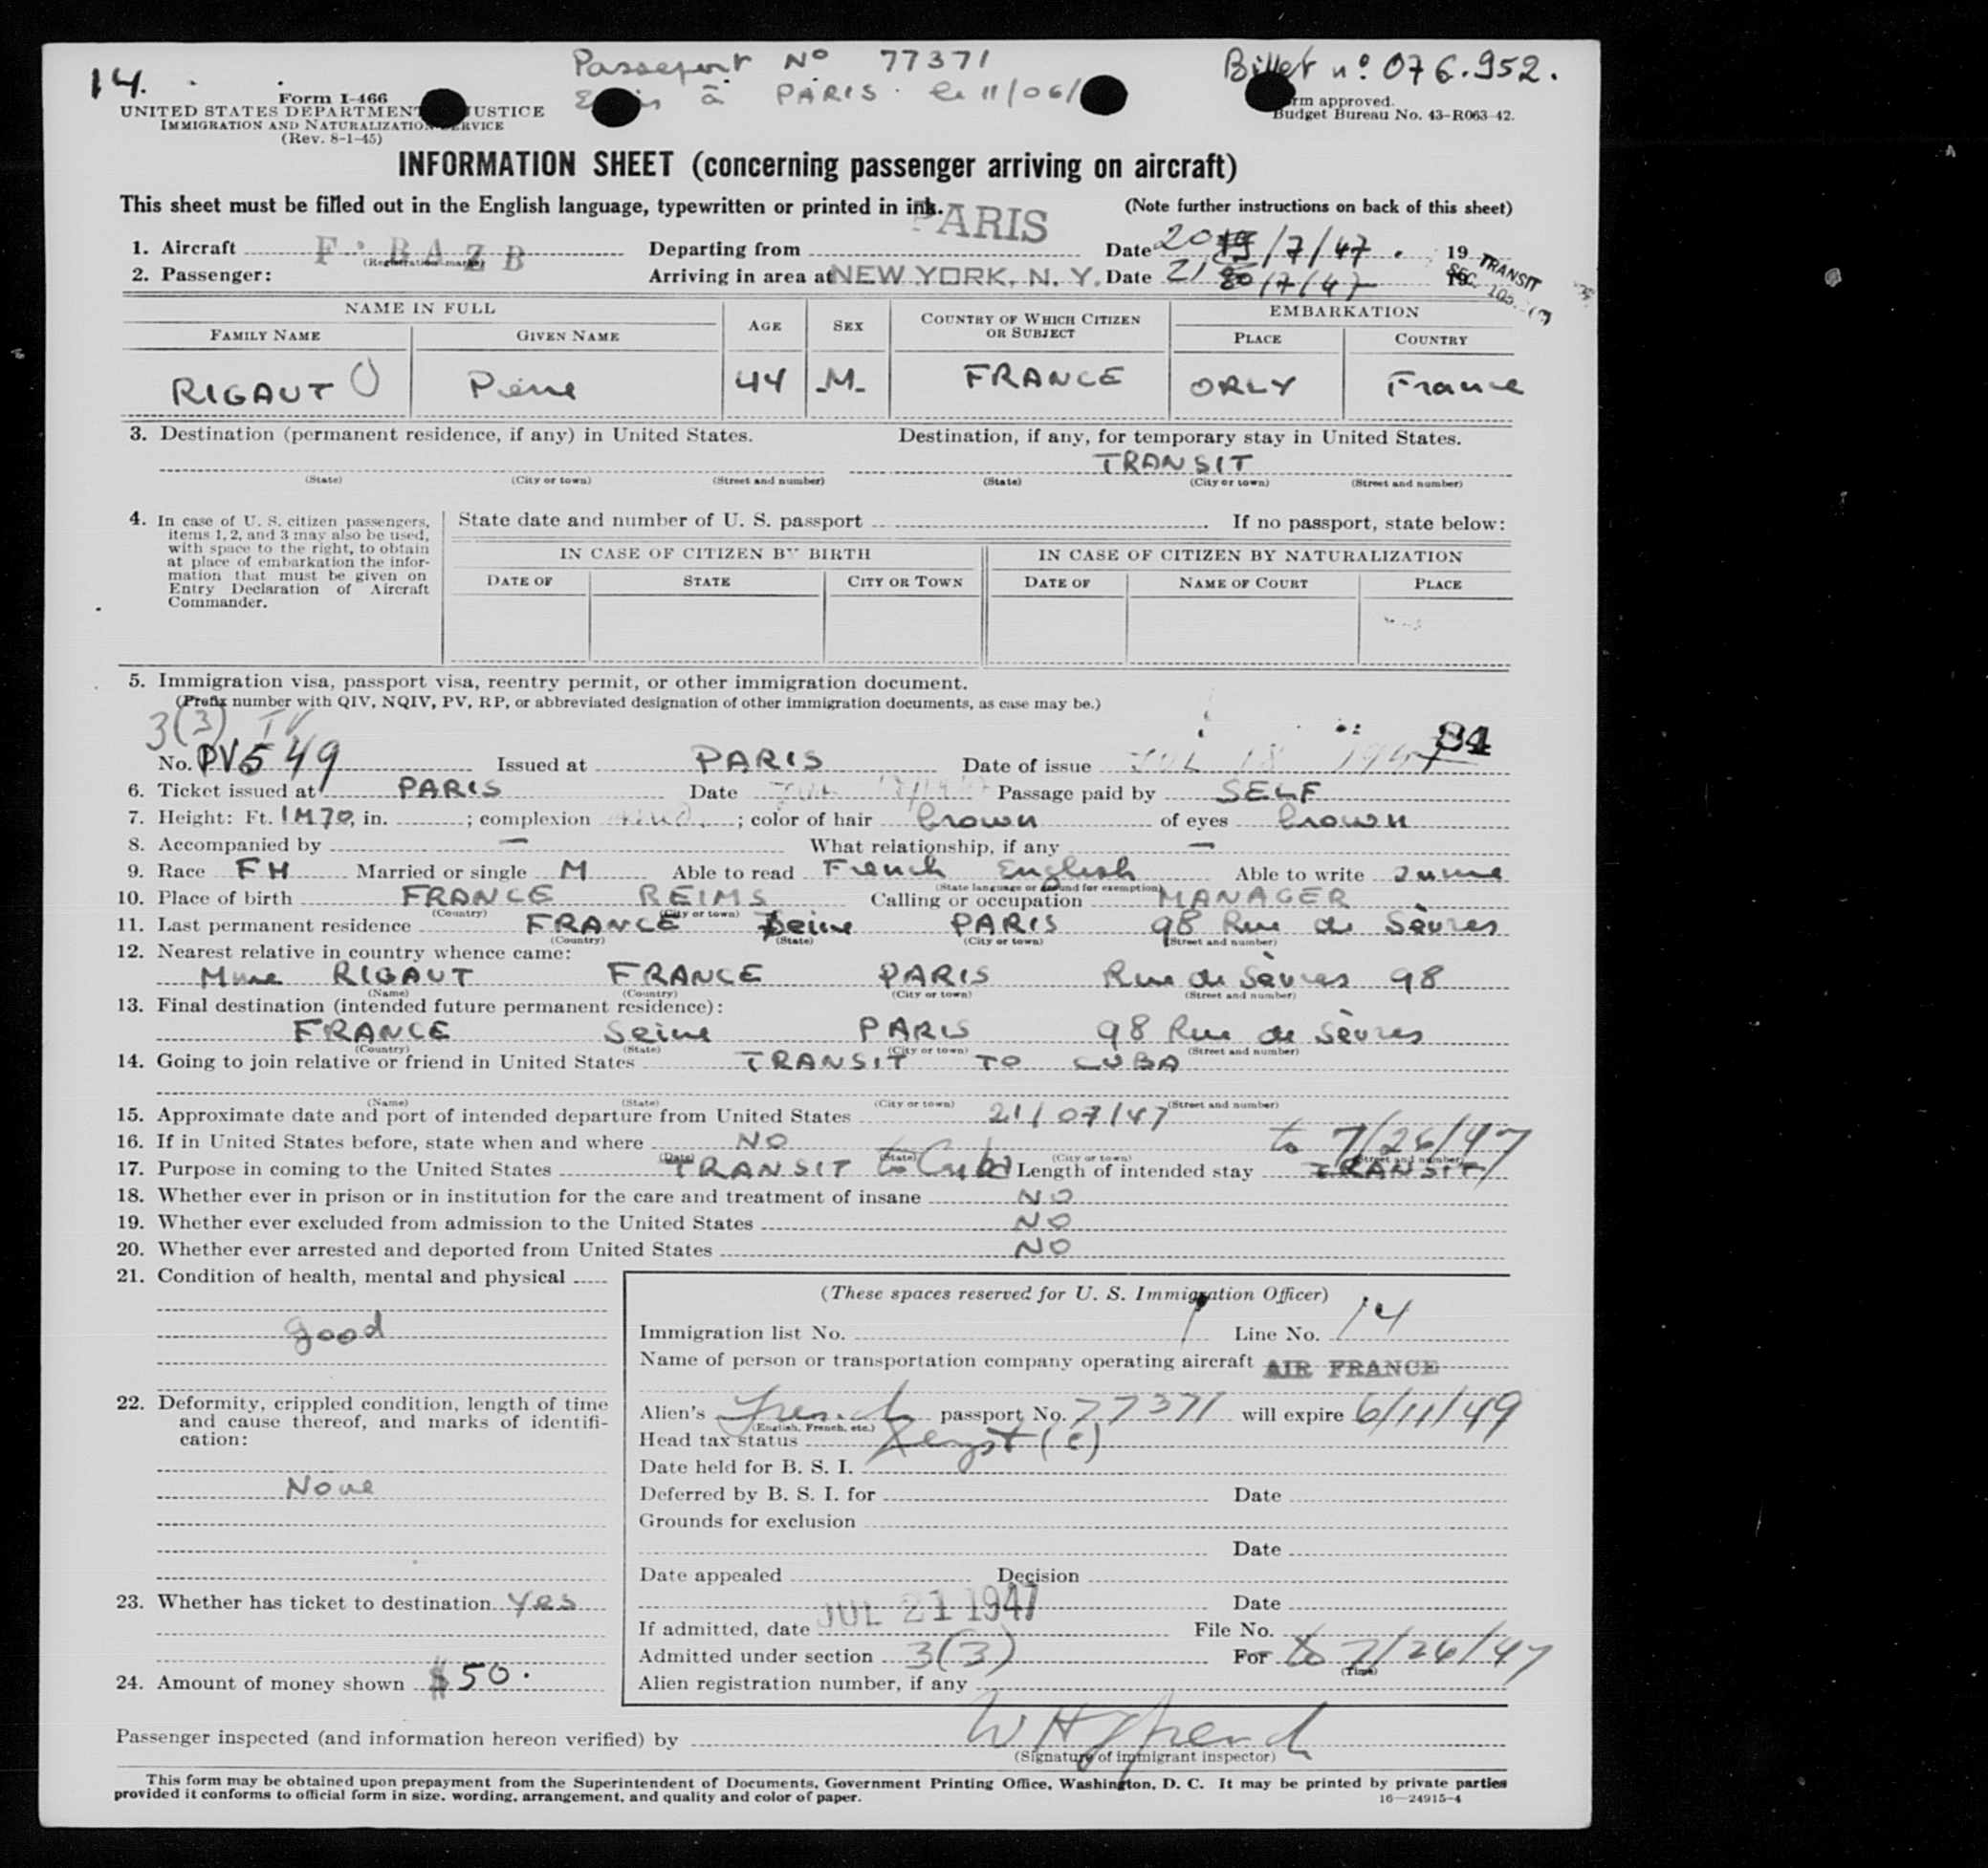 14.
Passeport No 77371
Billet no. 076.952.
Form I-466
UNITED STATES DEPARTMENT JUSTICE
à PARIS. le 11/06/
rm approved.
IMMIGRATION AND NATURALIZATION SERVICE
Budget Bureau No. 43-R063-42.
(Rev. 8-1-45)
INFORMATION SHEET (concerning passenger arriving on aircraft)
This sheet must be filled out in the English language, typewritten or printed in ink. (Note further instructions on back of this sheet)
1. Aircraft F·BAZB Departing from PARIS Date 20 19/7/47. 19
(Registration marks)
TRANSIT
2. Passenger: Arriving in area at NEW YORK, N. Y. Date 21 20/7/47 19
SEC.
NAME IN FULL
FAMILY NAME GIVEN NAME AGE SEX COUNTRY OF WHICH CITIZEN OR SUBJECT EMBARKATION
PLACE COUNTRY
RIGAUT Pierre 44 M- FRANCE ORLY France
3. Destination (permanent residence, if any) in United States. Destination, if any, for temporary stay in United States.
TRANSIT
(State) (City or town) (Street and number) (State) (City or town) (Street and number)
4. In case of U. S. citizen passengers, items 1, 2, and 3 may also be used, with space to the right, to obtain at place of embarkation the information that must be given on Entry Declaration of Aircraft Commander.
State date and number of U. S. passport If no passport, state below:
IN CASE OF CITIZEN BY BIRTH IN CASE OF CITIZEN BY NATURALIZATION
DATE OF STATE CITY OR TOWN DATE OF NAME OF COURT PLACE
5. Immigration visa, passport visa, reentry permit, or other immigration document.
(Prefix number with QIV, NQIV, PV, RP, or abbreviated designation of other immigration documents, as case may be.)
3(3) TV
84
No. PV549 Issued at PARIS Date of issue JUL 18 1947
6. Ticket issued at PARIS Date Passage paid by SELF
7. Height: Ft. 1M70, in. ; complexion ; color of hair brown of eyes brown
8. Accompanied by — What relationship, if any —
9. Race FH Married or single M Able to read French English Able to write
(State language or ground for exemption)
10. Place of birth FRANCE REIMS Calling or occupation MANAGER
(Country) (City or town)
11. Last permanent residence FRANCE Seine PARIS 98 Rue de Sèvres
(Country) (State) (City or town) (Street and number)
12. Nearest relative in country whence came:
Mme RIGAUT FRANCE PARIS Rue de Sèvres 98
(Name) (Country) (City or town) (Street and number)
13. Final destination (intended future permanent residence):
FRANCE Seine PARIS 98 Rue de Sèvres
(Country) (State) (City or town) (Street and number)
14. Going to join relative or friend in United States TRANSIT TO CUBA
(Name) (State) (City or town) (Street and number)
15. Approximate date and port of intended departure from United States 21/07/47
16. If in United States before, state when and where NO to 7/26/47
(Date) (State) (City or town) (Street and number)
17. Purpose in coming to the United States TRANSIT to Cuba Length of intended stay TRANSIT
18. Whether ever in prison or in institution for the care and treatment of insane NO
19. Whether ever excluded from admission to the United States NO
20. Whether ever arrested and deported from United States NO
21. Condition of health, mental and physical
good
22. Deformity, crippled condition, length of time and cause thereof, and marks of identification:
None
23. Whether has ticket to destination Yes
24. Amount of money shown $50.
(These spaces reserved for U. S. Immigration Officer)
Immigration list No. 1 Line No. 14
Name of person or transportation company operating aircraft AIR FRANCE
Alien's French passport No. 77371 will expire 6/11/49
(English, French, etc.)
Head tax status (c)
Date held for B. S. I.
Deferred by B. S. I. for Date
Grounds for exclusion
Date
Date appealed Decision
Date
If admitted, date JUL 21 1947 File No.
Admitted under section 3(3) For to 7/26/47
(Time)
Alien registration number, if any
Passenger inspected (and information hereon verified) by
(Signature of immigrant inspector)
This form may be obtained upon prepayment from the Superintendent of Documents, Government Printing Office, Washington, D. C. It may be printed by private parties
provided it conforms to official form in size, wording, arrangement, and quality and color of paper. 16—24915-4